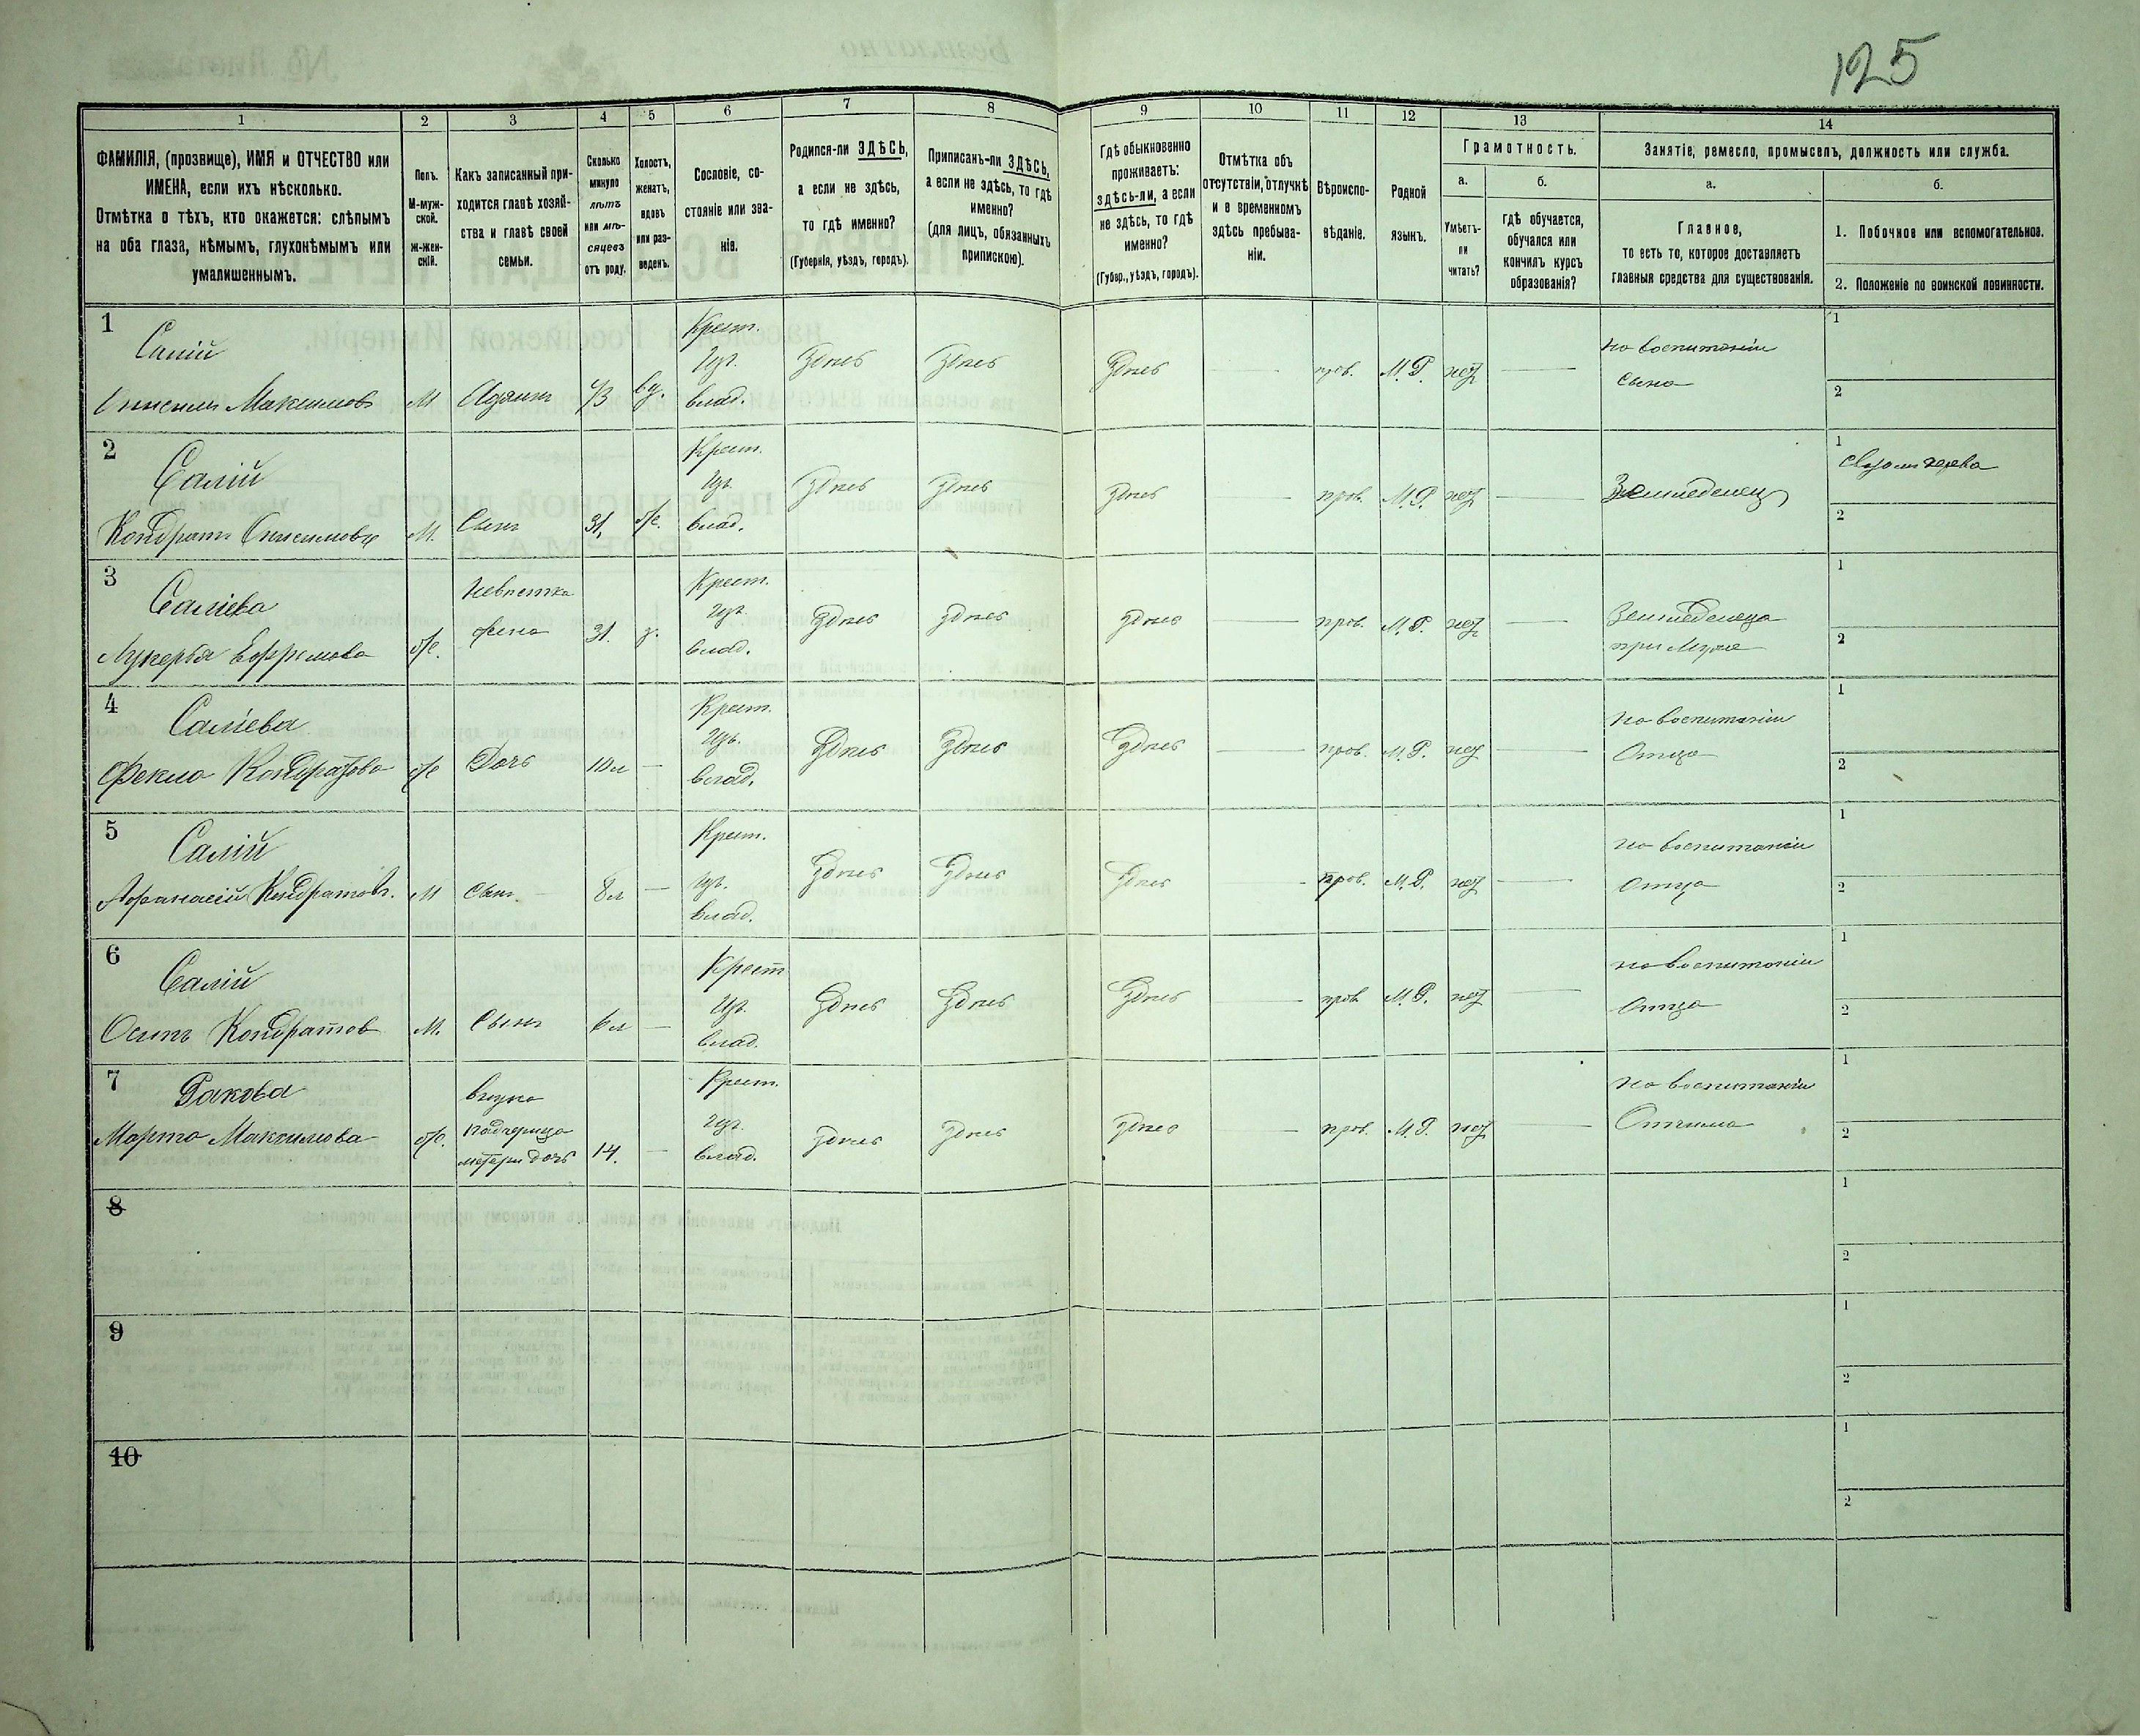 125
1 2 3 4 5 6 7 8 9 10 11 12 13 14
ФАМИЛІЯ, (прозвище), ИМЯ и ОТЧЕСТВО или
ИМЕНА, если ихъ нѣсколько.
Отмѣтка о тѣхъ, кто окажется: слѣпымъ
на оба глаза, нѣмымъ, глухонѣмымъ или
умалишеннымъ.
Полъ.
М-муж-
ской.
Ж-жен-
скій.
Какъ записанный при-
ходится главѣ хозяй-
ства и главѣ своей
семьи.
Сколько
минуло
лѣтъ
или мѣ-
сяцевъ
отъ роду.
Холостъ,
женатъ,
вдовъ
или раз-
веденъ.
Сословіе, со-
стояніе или зва-
ніе.
Родился-ли ЗДѢСЬ,
а если не здѣсь,
то гдѣ именно?
(Губернія, уѣздъ, городъ).
Приписанъ-ли ЗДѢСЬ,
а если не здѣсь, то гдѣ
именно?
(для лицъ, обязанныхъ
припискою).
Гдѣ обыкновенно
проживаетъ:
здѣсь-ли, а если
не здѣсь, то гдѣ
именно?
(Губер., уѣздъ, городъ).
Отмѣтка объ
отсутствіи, отлучкѣ
и о временномъ
здѣсь пребыва-
ніи.
Вѣроиспо-
вѣданіе.
Родной
языкъ.
Грамотность.
а.
Умѣетъ-
ли
читать?
б.
гдѣ обучается,
обучался или
кончилъ курсъ
образованія?
Занятіе, ремесло, промыселъ, должность или служба.
а.
Главное,
то есть то, которое доставляетъ
главныя средства для существованія.
б.
1. Побочное или вспомогательное.
2. Положеніе по воинской повинности.
1
Салій
Онисимъ Максимовъ
М
вд.
Крест.
влад.
Здѣсь
Здѣсь
Здѣсь
прав.
М. Р.
нѣт
на воспитаніи
сына
1
2
2
Салій
Кондратъ Онисимовъ
М.
Сынъ
31
ж.
Крест.
влад.
Здѣсь
Здѣсь
Здѣсь
прав.
М. Р.
нѣт
Земледелец
1
2
3
Саліева
Лукерья Ефремова
ж.
Невѣстка
жена
31.
з.
Крест.
влад.
Здѣсь
Здѣсь
Здѣсь
прав.
М. Р.
нѣт
Земледелеца
при Муже
1
2
4
Саліева
Фекла Кондратова
ж
Дочь
10 л
Крест.
влад.
Здѣсь
Здѣсь
Здѣсь
прав.
М. Р.
нѣт
на воспитаніи
Отца
1
2
5
Салій
Афанасій Кондратов.
М
Сын
8 л
Крест.
влад.
Здѣсь
Здѣсь
Здѣсь
прав.
М. Р.
нѣт
на воспитаніи
отца
1
2
6
Салій
Осипъ Кондратов
М.
Сынъ
6 л
Крест
влад.
Здѣсь
Здѣсь
Здѣсь
прав
М. Р.
нѣт
на воспитаніи
Отца
1
2
7
Ракова
Марта Максимова
ж.
внука
падчерица
матери дочь
14.
Крест.
влад.
Здѣсь
Здѣсь
Здѣсь
прав.
М. Р.
нѣт
на воспитаніи
Отчима
1
2
8
1
2
9
1
2
10
1
2